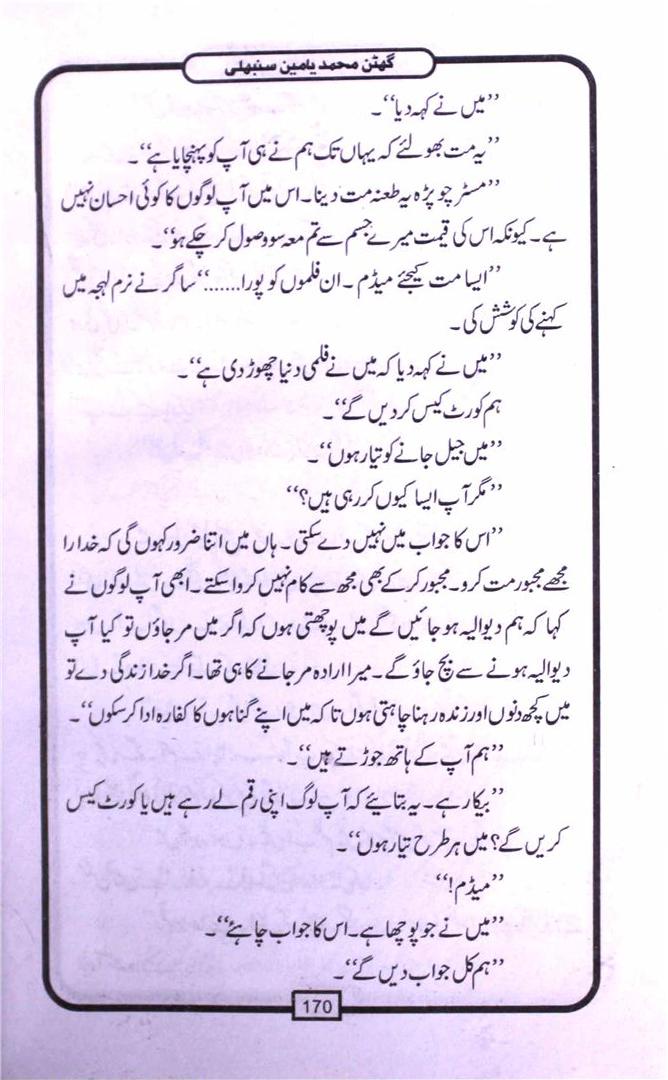 گھٹن محمد یامین سنبھلی
’’میں نے کہہ دیا‘‘۔
’’یہ مت بھولئے کہ یہاں تک ہم نے ہی آپ کو پہنچایا ہے‘‘۔
’’مسٹر چوپڑہ یہ طعنہ مت دینا۔ اس میں آپ لوگوں کا کوئی احسان نہیں
ہے۔ کیونکہ اس کی قیمت میرے جسم سے تم معہ سود وصول کر چکے ہو‘‘۔
’’ایسا مت کیجئے میڈم۔ ان فلموں کو پورا.......‘‘ ساگر نے نرم لہجہ میں
کہنے کی کوشش کی۔
’’میں نے کہہ دیا کہ میں نے فلمی دنیا چھوڑ دی ہے‘‘۔
ہم کورٹ کیس کر دیں گے‘‘۔
’’میں جیل جانے کو تیار ہوں‘‘۔
’’مگر آپ ایسا کیوں کر رہی ہیں؟‘‘
’’اس کا جواب میں نہیں دے سکتی۔ ہاں میں اتنا ضرور کہوں گی کہ خدارا
مجھے مجبور مت کرو۔ مجبور کر کے بھی مجھ سے کام نہیں کروا سکتے۔ ابھی آپ لوگوں نے
کہا کہ ہم دیوالیہ ہو جائیں گے میں پوچھتی ہوں کہ اگر میں مر جاؤں تو کیا آپ
دیوالیہ ہونے سے بچ جاؤ گے۔ میرا ارادہ مر جانے کا ہی تھا۔ اگر خدا زندگی دے تو
میں کچھ دنوں اور زندہ رہنا چاہتی ہوں تاکہ میں اپنے گناہوں کا کفارہ ادا کر سکوں‘‘۔
’’ہم آپ کے ہاتھ جوڑتے ہیں‘‘۔
’’بیکار ہے۔ یہ بتائیے کہ آپ لوگ اپنی رقم لے رہے ہیں یا کورٹ کیس
کریں گے؟ میں ہر طرح تیار ہوں‘‘۔
’’میڈم!‘‘
’’میں نے جو پوچھا ہے۔ اس کا جواب چاہئے‘‘۔
’’ہم کل جواب دیں گے‘‘۔
170